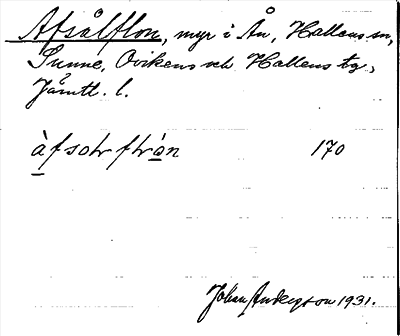 Afsålflon, myr i Ån, Hallens sn,
Sunne, Ovikens och Hallens tg,
Jämtl. l.
àfsoƚrfƚràn 170
Johan Anderson 1931.